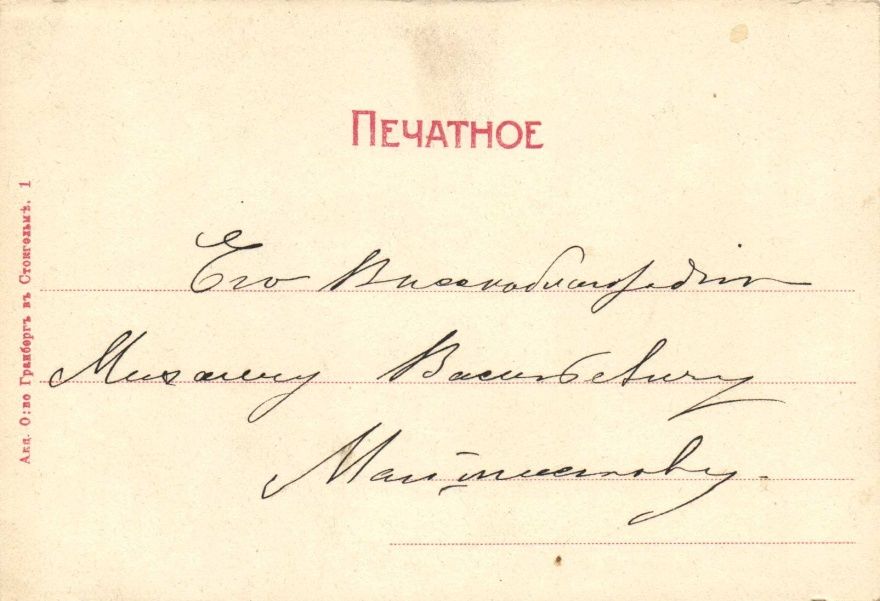 ПЕЧАТНОЕ
Акц. О:во Гранбергъ въ Стокгольмѣ. 1
Его Высокоблагородію
Михаилу Васильевичу